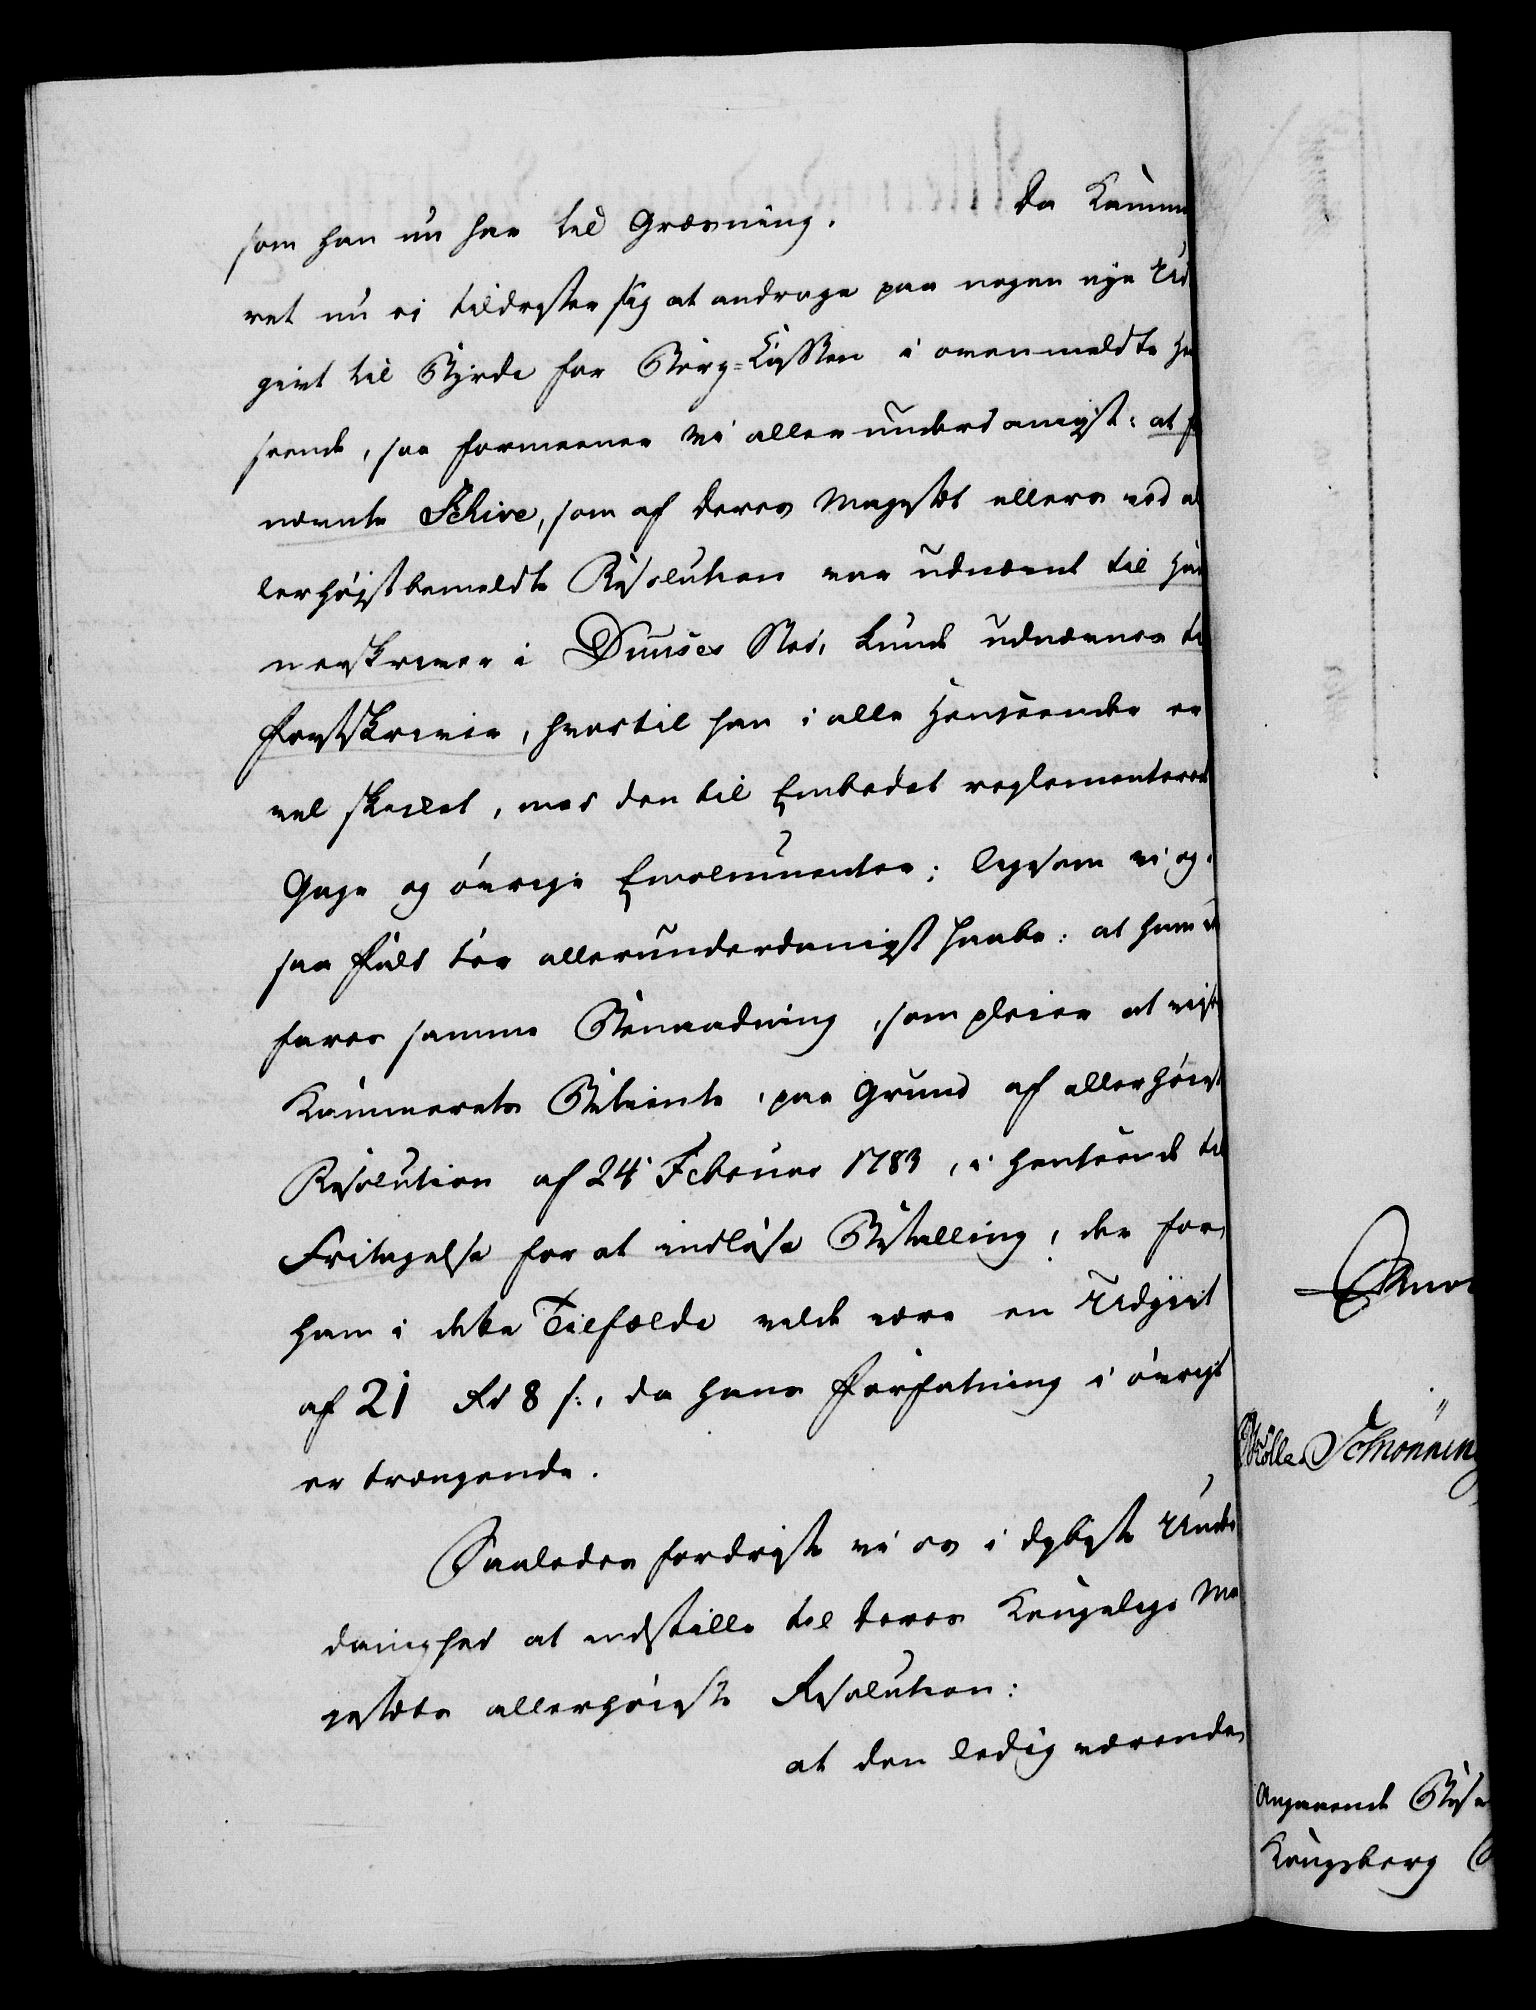 som han nu har til Græsning. Da Kamme
ret nu ei tildrister sig at andrage paa nogen nye Ud
givt til Byrde for Berg-Cassen i ovenmeldte Hen
seende, saa formeener vi allerunderdanigst: at
nævnte Schive, som af Deres Majestæt ellers ved al
lerhøistbemeldte Resolution var udnævnt til
nerskriver i Duuses Sted, kunde udnævnes til
Forstskriver, hvortil han i alle Henseender er
vel skikket, med den til Embedet reglementerede
Gage og øvrige Emolumenter; ligesom vi og-
saa fuld tør allerunderdanigst haabe: at ham
fares samme Benaadning, som pleier at
Kammerets Betiente, paa Grund af allerhøieste
Resolution af 24 Februar 1783, i Henseende til
Fritagelse for at indløse Bestalling, der for
ham i dette Tilfælde vilde være en Udgivt
af 21 Rd 8 s:, da hans Forfatning i øvrigt
er trængende.
Saaledes fordriste vi os i dybeste Under
danighed at indstille til Deres Kongelige Ma
jestæts allerhøieste Resolution:
at den ledig værende
Møller Schrönning
Angaaende Besæ
Kongsberg